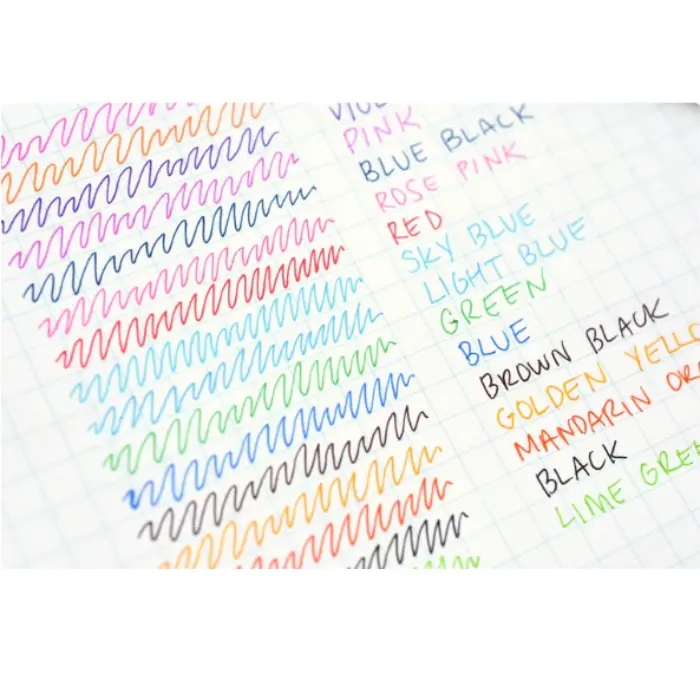 PINK
BLUE BLACK
ROSE PINK
RED
SKY BLUE
LIGHT BLUE
GREEN
BLUE
BROWN BLACK
GOLDEN
MANDARIN
BLACK
LIME